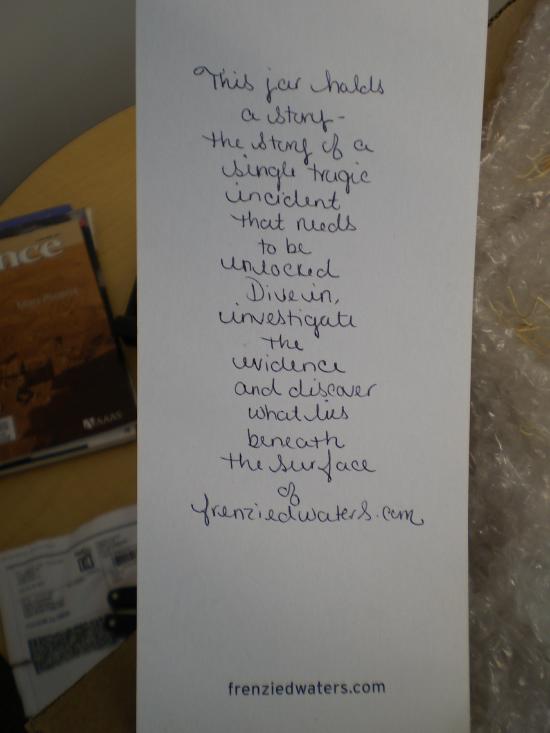 This jar holds
a story-
the story of a
single tragic
incident
that needs
to be
unlocked
Dive in,
investigate
the
evidence
and discover
what lies
beneath
the surface
of
frenziedwaters.com
frenziedwaters.com
nce
AAAS